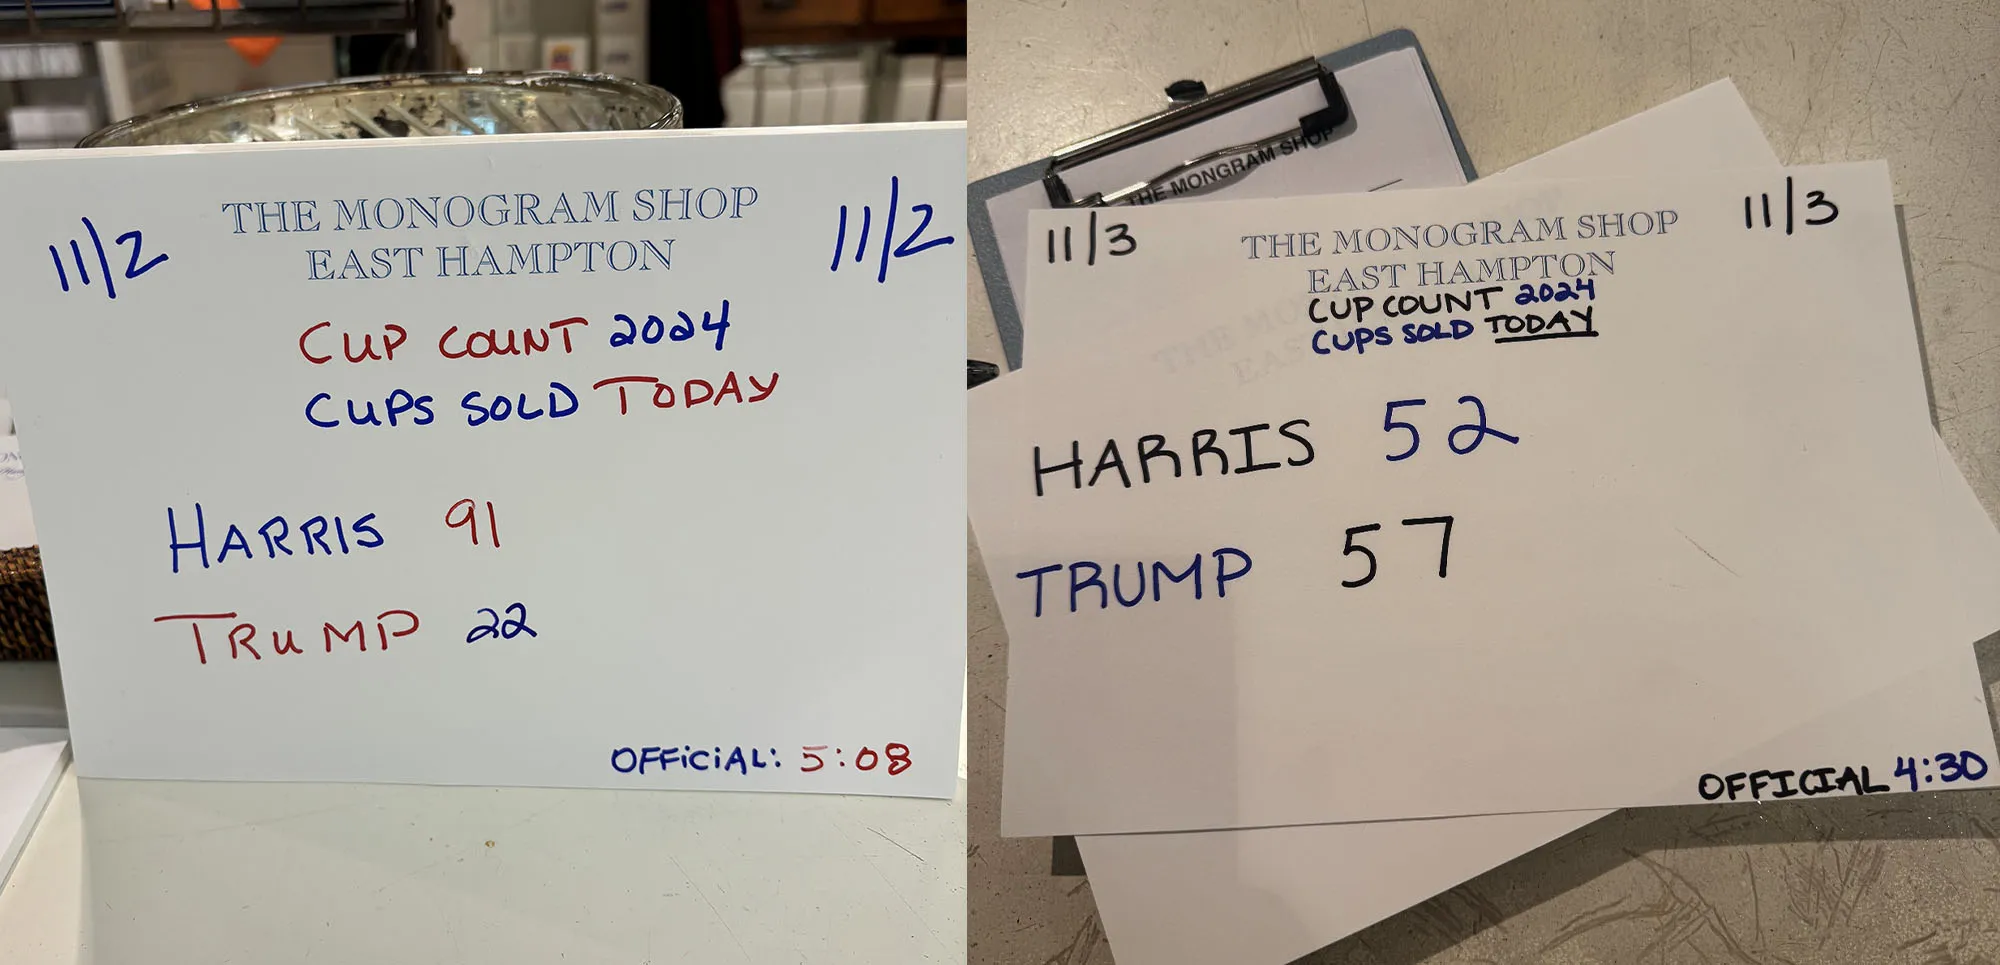 11/2
THE MONOGRAM SHOP
EAST HAMPTON
11/2
CUP COUNT 2024
CUPS SOLD TODAY
HARRIS 91
TRUMP 22
OFFICIAL: 5:08
THE MONGRAM SHOP
11/3
THE MONOGRAM SHOP
EAST HAMPTON
11/3
CUP COUNT 2024
CUPS SOLD TODAY
HARRIS 52
TRUMP 57
OFFICIAL 4:30